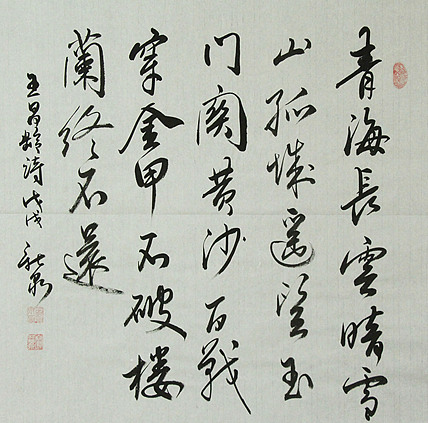 青海長雲暗雪
山孤城遥望玉
门関黄沙百戰
穿金甲不破楼
蘭终不還
王昌齡詩戊戌